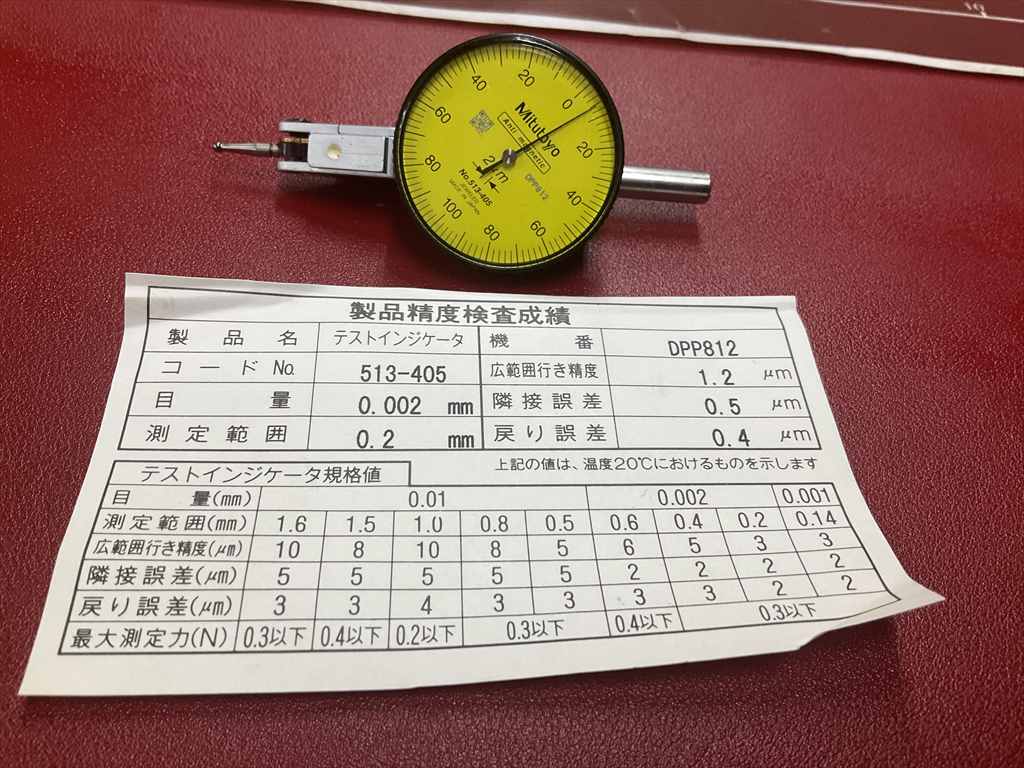 40 20 0 20 40 60 80 100 80 60
Mitutoyo
Anti magnetic
2μm
DPP812
No.513-405
JEWELED
MADE IN JAPAN
製品精度検査成績
製品名 テストインジケータ 機番 DPP812
コードNo. 513-405 広範囲行き精度 1.2 μm
目量 0.002 mm 隣接誤差 0.5 μm
測定範囲 0.2 mm 戻り誤差 0.4 μm
上記の値は、温度20℃におけるものを示します
テストインジケータ規格値
目量(mm) 0.01 0.002 0.001
測定範囲(mm) 1.6 1.5 1.0 0.8 0.5 0.6 0.4 0.2 0.14
広範囲行き精度(μm) 10 8 10 8 5 6 5 3 3
隣接誤差(μm) 5 5 5 5 5 2 2 2 2
戻り誤差(μm) 3 3 4 3 3 3 3 2 2
最大測定力(N) 0.3以下 0.4以下 0.2以下 0.3以下 0.4以下 0.3以下